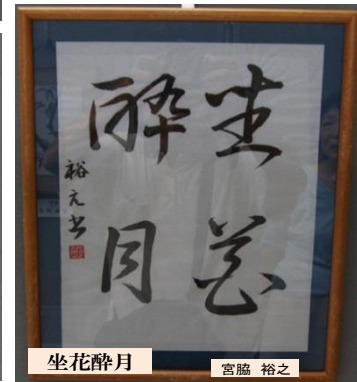 坐花
酔月
裕元書
坐花酔月
宮脇 裕之